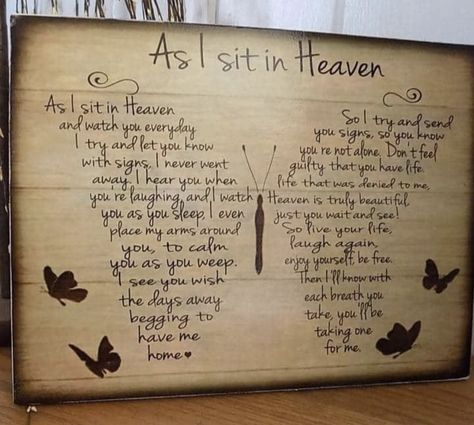 As I sit in Heaven
As I sit in Heaven
and watch you everyday
I try and let you know
with signs, I never went
away. I hear you when
you're laughing, and I watch
you as you sleep. I even
place my arms around
you, to calm
you as you weep.
I see you wish
the days away
begging to
have me
home♥
So I try and send
you signs, so you know
you're not alone. Don't feel
guilty that you have life.
life that was denied to me,
Heaven is truly beautiful,
just you wait and see!
So live your life,
laugh again,
enjoy yourself, be free.
Then I'll know with
each breath you
take, you'll be
taking one
for me.